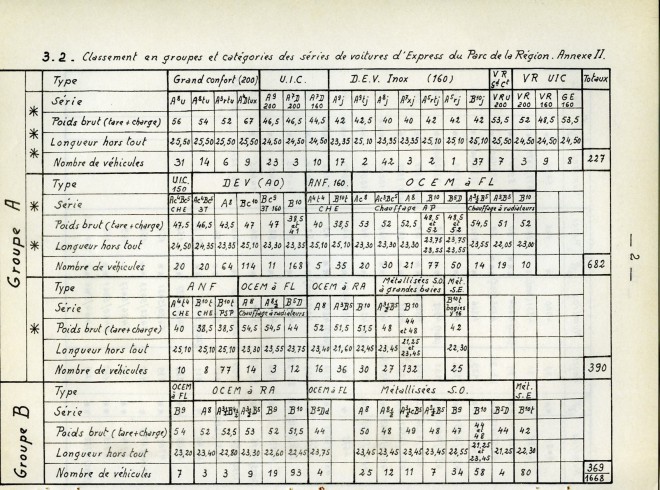 3.2. Classement en groupes et catégories des séries de voitures d'Express du Parc de la Région. Annexe II.
Type Grand confort (200) U.I.C. D.E.V. Inox (160) VR Gd ct VR UIC Totaux
Série A8u A8tu A3rtu A9 200 A7D 200 A7D 160 A9j A9tj A8j A7xj A5rtj A5rj B10j VRU 200 VR 200 VR 160 GE 160
Poids brut (tare + charge) 56 54 52 67 46,5 46,5 44,5 42 42,5 40 40 42 42 42 53,5 52 48,5 53,5
Longueur hors tout 25,50 25,50 25,50 25,50 24,50 24,50 24,50 23,35 25,10 23,35 23,35 25,10 25,10 25,10 25,50 24,50 24,50 24,50
Nombre de véhicules 31 14 6 9 23 3 10 17 2 42 3 2 1 37 7 3 9 8 227
Type U.I.C. 150 DEV (AO) ANF. 160. OCEM à FL
Série CHE 3T A8 Bc10 Bc9 3T 160 B10 A4t4 B10t CHE Ac8 A8 B10 B5D Chauffage AP B10 Chauffage à radiateurs
Poids brut (tare + charge) 47,5 46,5 43,5 47 47 38,5 et 41 40 38,5 53 52 52,5 48,5 et 52 48,5 et 52 54,5 51 52
Longueur hors tout 24,50 24,35 23,35 25,10 23,30 23,35 25,10 25,10 23,30 23,30 23,30 23,75 23,55 23,75 23,55 23,55 22,05 23,00
Nombre de véhicules 20 20 64 114 11 168 5 35 20 30 21 77 50 14 19 10 682
Type ANF OCEM à FL OCEM à RA Métallisées S.O. à grandes baies Mét. S.E.
Série A4t4 CHE B10t CHE B10t PSP A8 B5D Chauffage à radiateurs A8 B10 B10 B10t bogies Y16
Poids brut (tare + charge) 40 38,5 38,5 54,5 54,5 44 52 51,5 51,5 48 44 et 48 42
Longueur hors tout 25,10 25,10 25,10 23,30 23,55 23,75 23,40 21,60 22,45 23,45 21,25 et 23,45 22,30
Nombre de véhicules 40 8 77 14 3 12 16 36 30 27 132 25 390
Type OCEM à FL OCEM à RA OCEM à FL Métallisées S.O. Mét. S.E.
Série B9 A8 B9 B10 B5Dd A8 B9 B10 B5D B10t
Poids brut (tare + charge) 54 52 52,5 53 52 51,5 44 50 48 49 48 47 44 et 48 44 42
Longueur hors tout 23,20 23,40 22,80 23,30 22,60 22,45 23,75 23,45 23,45 23,45 23,45 22,55 21,25 et 23,45 21,25 22,30
Nombre de véhicules 7 3 3 9 19 93 4 25 12 11 7 34 58 4 80 369
1668
Groupe A
Groupe B
— 2 —